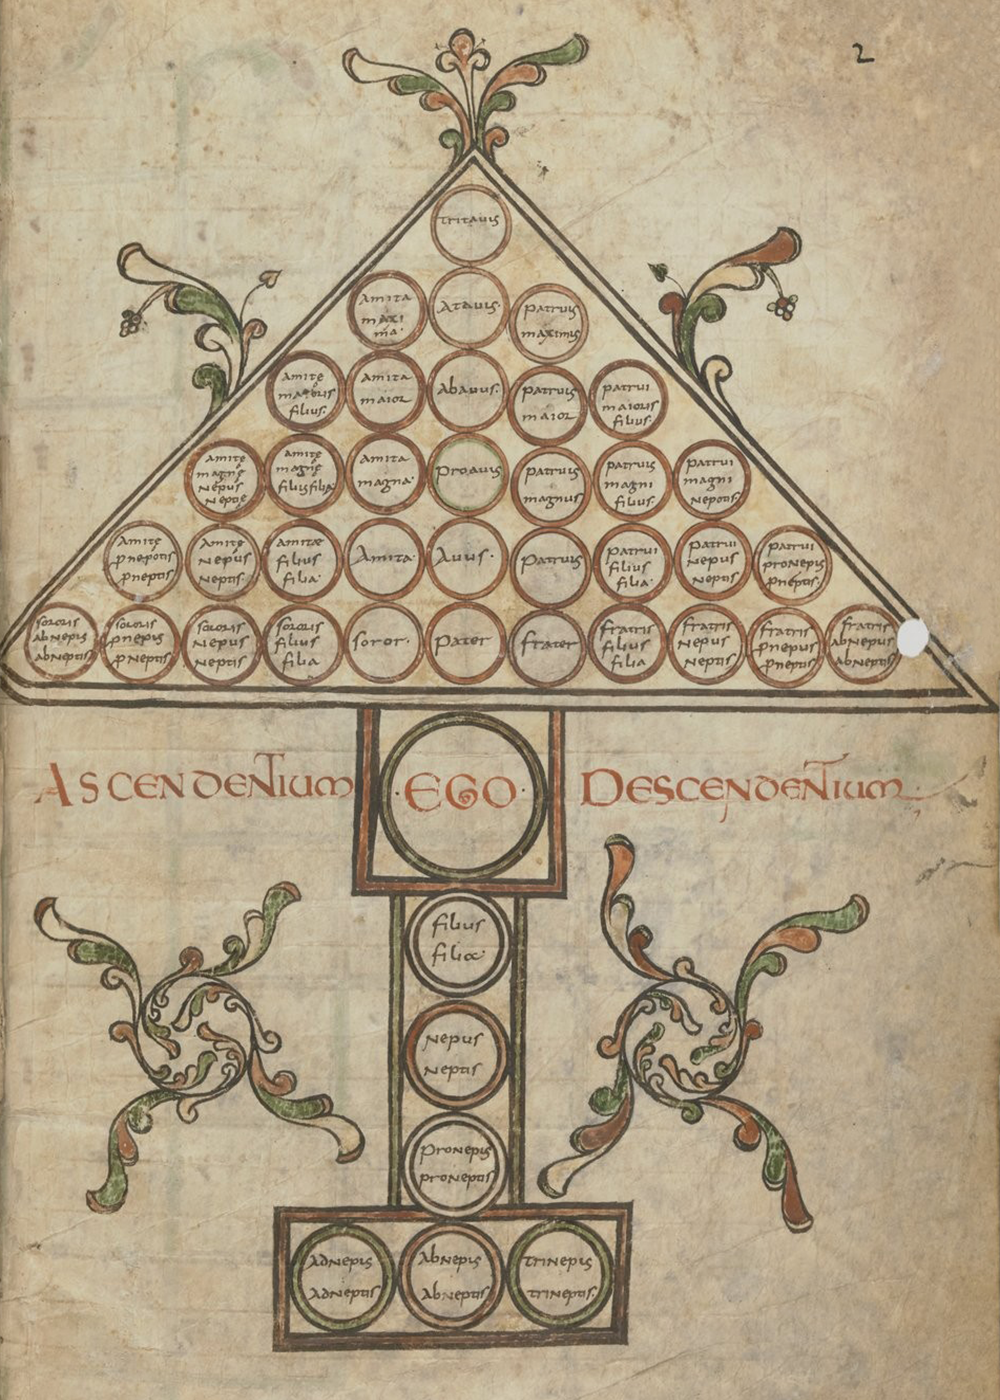 2
Tritavus
Amita
maxi
ma
Atavus
Patruus
maximus
Amitę
maioris
filius
Amita
maior
Abavus
Patruus
maior
patrui
maioris
filius
Amitę
magnę
Nepus
Neptis
Amitę
magnę
filius filia
Amita
magna
Proavus
patruus
magnus
patrui
magni
filius
Patrui
magni
Nepotis
Amitę
pnepotis
pneptis
Amitę
Nepus
Neptis
Amitæ
filius
filia
Amita
Avus
Patruus
Patrui
filius
filia
Patrui
Nepus
Neptis
Patrui
proNepis
pNeptis
sororis
abNepis
abNeptis
sororis
pnepis
pNeptis
sororis
Nepus
Neptis
sororis
filius
filia
soror
Pater
frater
fratris
filius
filia
fratris
Nepus
Neptis
fratris
pnepus
pneptis
fratris
abNepus
abNeptis
ASCENDENTIUM EGO DESCENDENTIUM
filius
filiæ
Nepus
Neptis
ProNepis
proNeptis
AdNepis
AdNeptis
AbNepis
AbNeptis
TriNepis
triNeptis